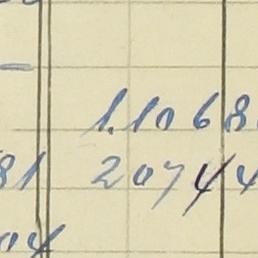 1.1068
81 20744
04